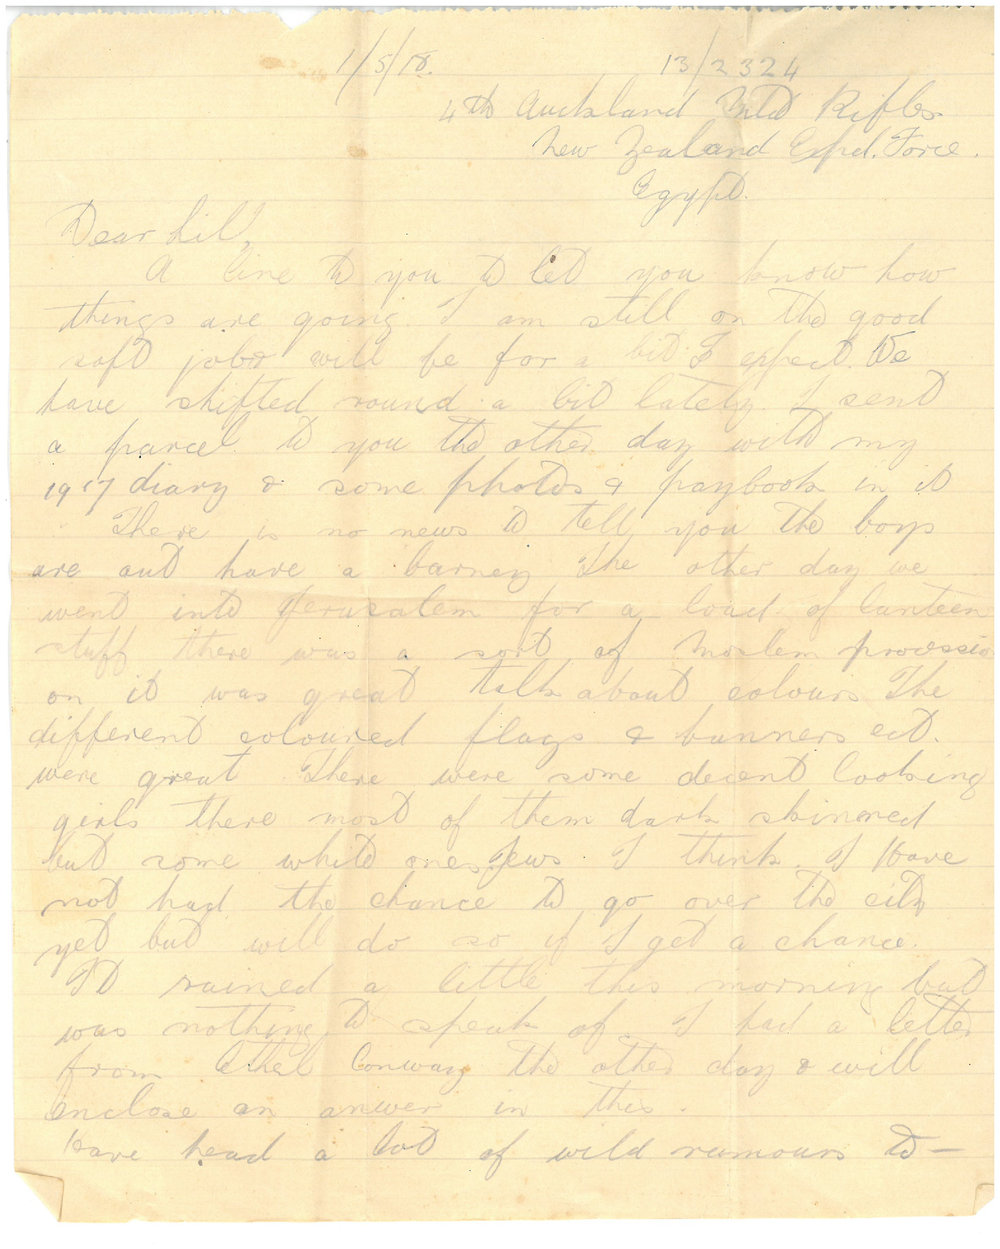 1/5/18. 13/2324
4th Auckland Mtd Rifles
New Zealand Expd. Force.
Egypt.
Dear Lil,
A line to you to let you know how
things are going. I am still on the good
soft job & will be for a bit I expect. We
have shifted round a bit lately. I sent
a parcel to you the other day with my
1917 diary & some photos & paybook in it
There is no news to tell you the boys
are out have a barney The other day we
went into Jerusalem for a load of canteen
stuff there was a sort of Moslem processio
on it was great talk about colours The
different coloured flags & banners ect.
were great There were some decent looking
girls there most of them dark skinned
but some white ones Jews I think. I Have
not had the chance to go over the city
yet but will do so if I get a chance.
It rained a little this morning but
was nothing to speak of. I had a letter
from Ethel Conway the other day & will
Enclose an anwer in this.
Have head a lot of wild rumours to —